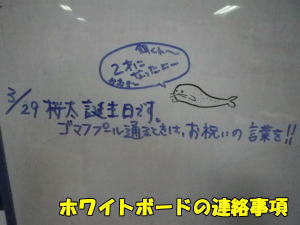 2才に
なったよー
3/29 桜太 誕生日です。
ゴマフプール通るときは、お祝いの言葉を!!
ホワイトボードの連絡事項